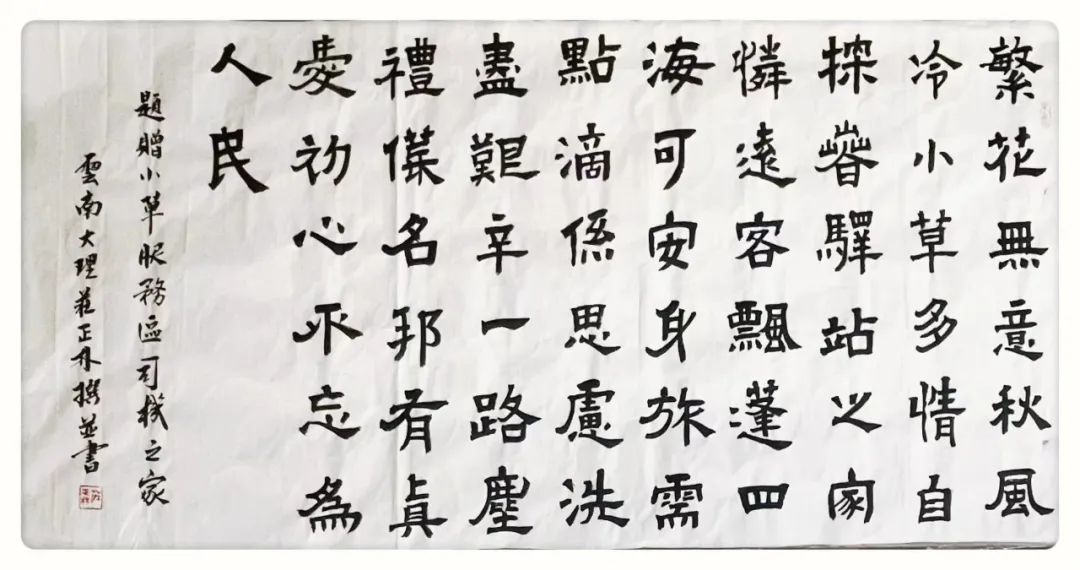 繁花無意秋風
冷小草多情自
探萅驛站之家
憐遠客飄蓬四
海可安身旅需
點滴係思慮洗
盡艱辛一路塵
禮儀名邦有眞
愛初心不忘為
人民
題贈小草服務區司機之家
雲南大理莊正撰並書